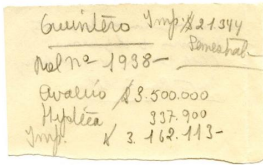 Quintero Imp. $ 21344
Semestral
Rol Nº 1938-
Avalúo $ 3.500.000
Hipoteca 337.900
Imp. $ 3.162.113-